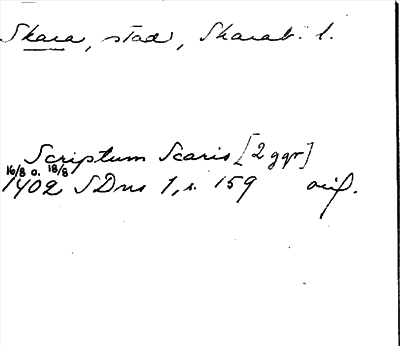 Skara, stad, Skarab. l.
Scriptum Scaris [2 ggr]
16/8 o. 18/8
1402 SDns 1, s. 159 avf.